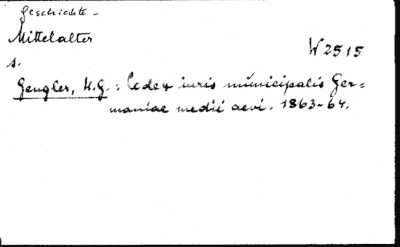 Geschichte -
Mittelalter
W 2515
s.
Gengler, H.G.: Codex iuris municipalis Ger=
maniae medii aevi. 1863-64.